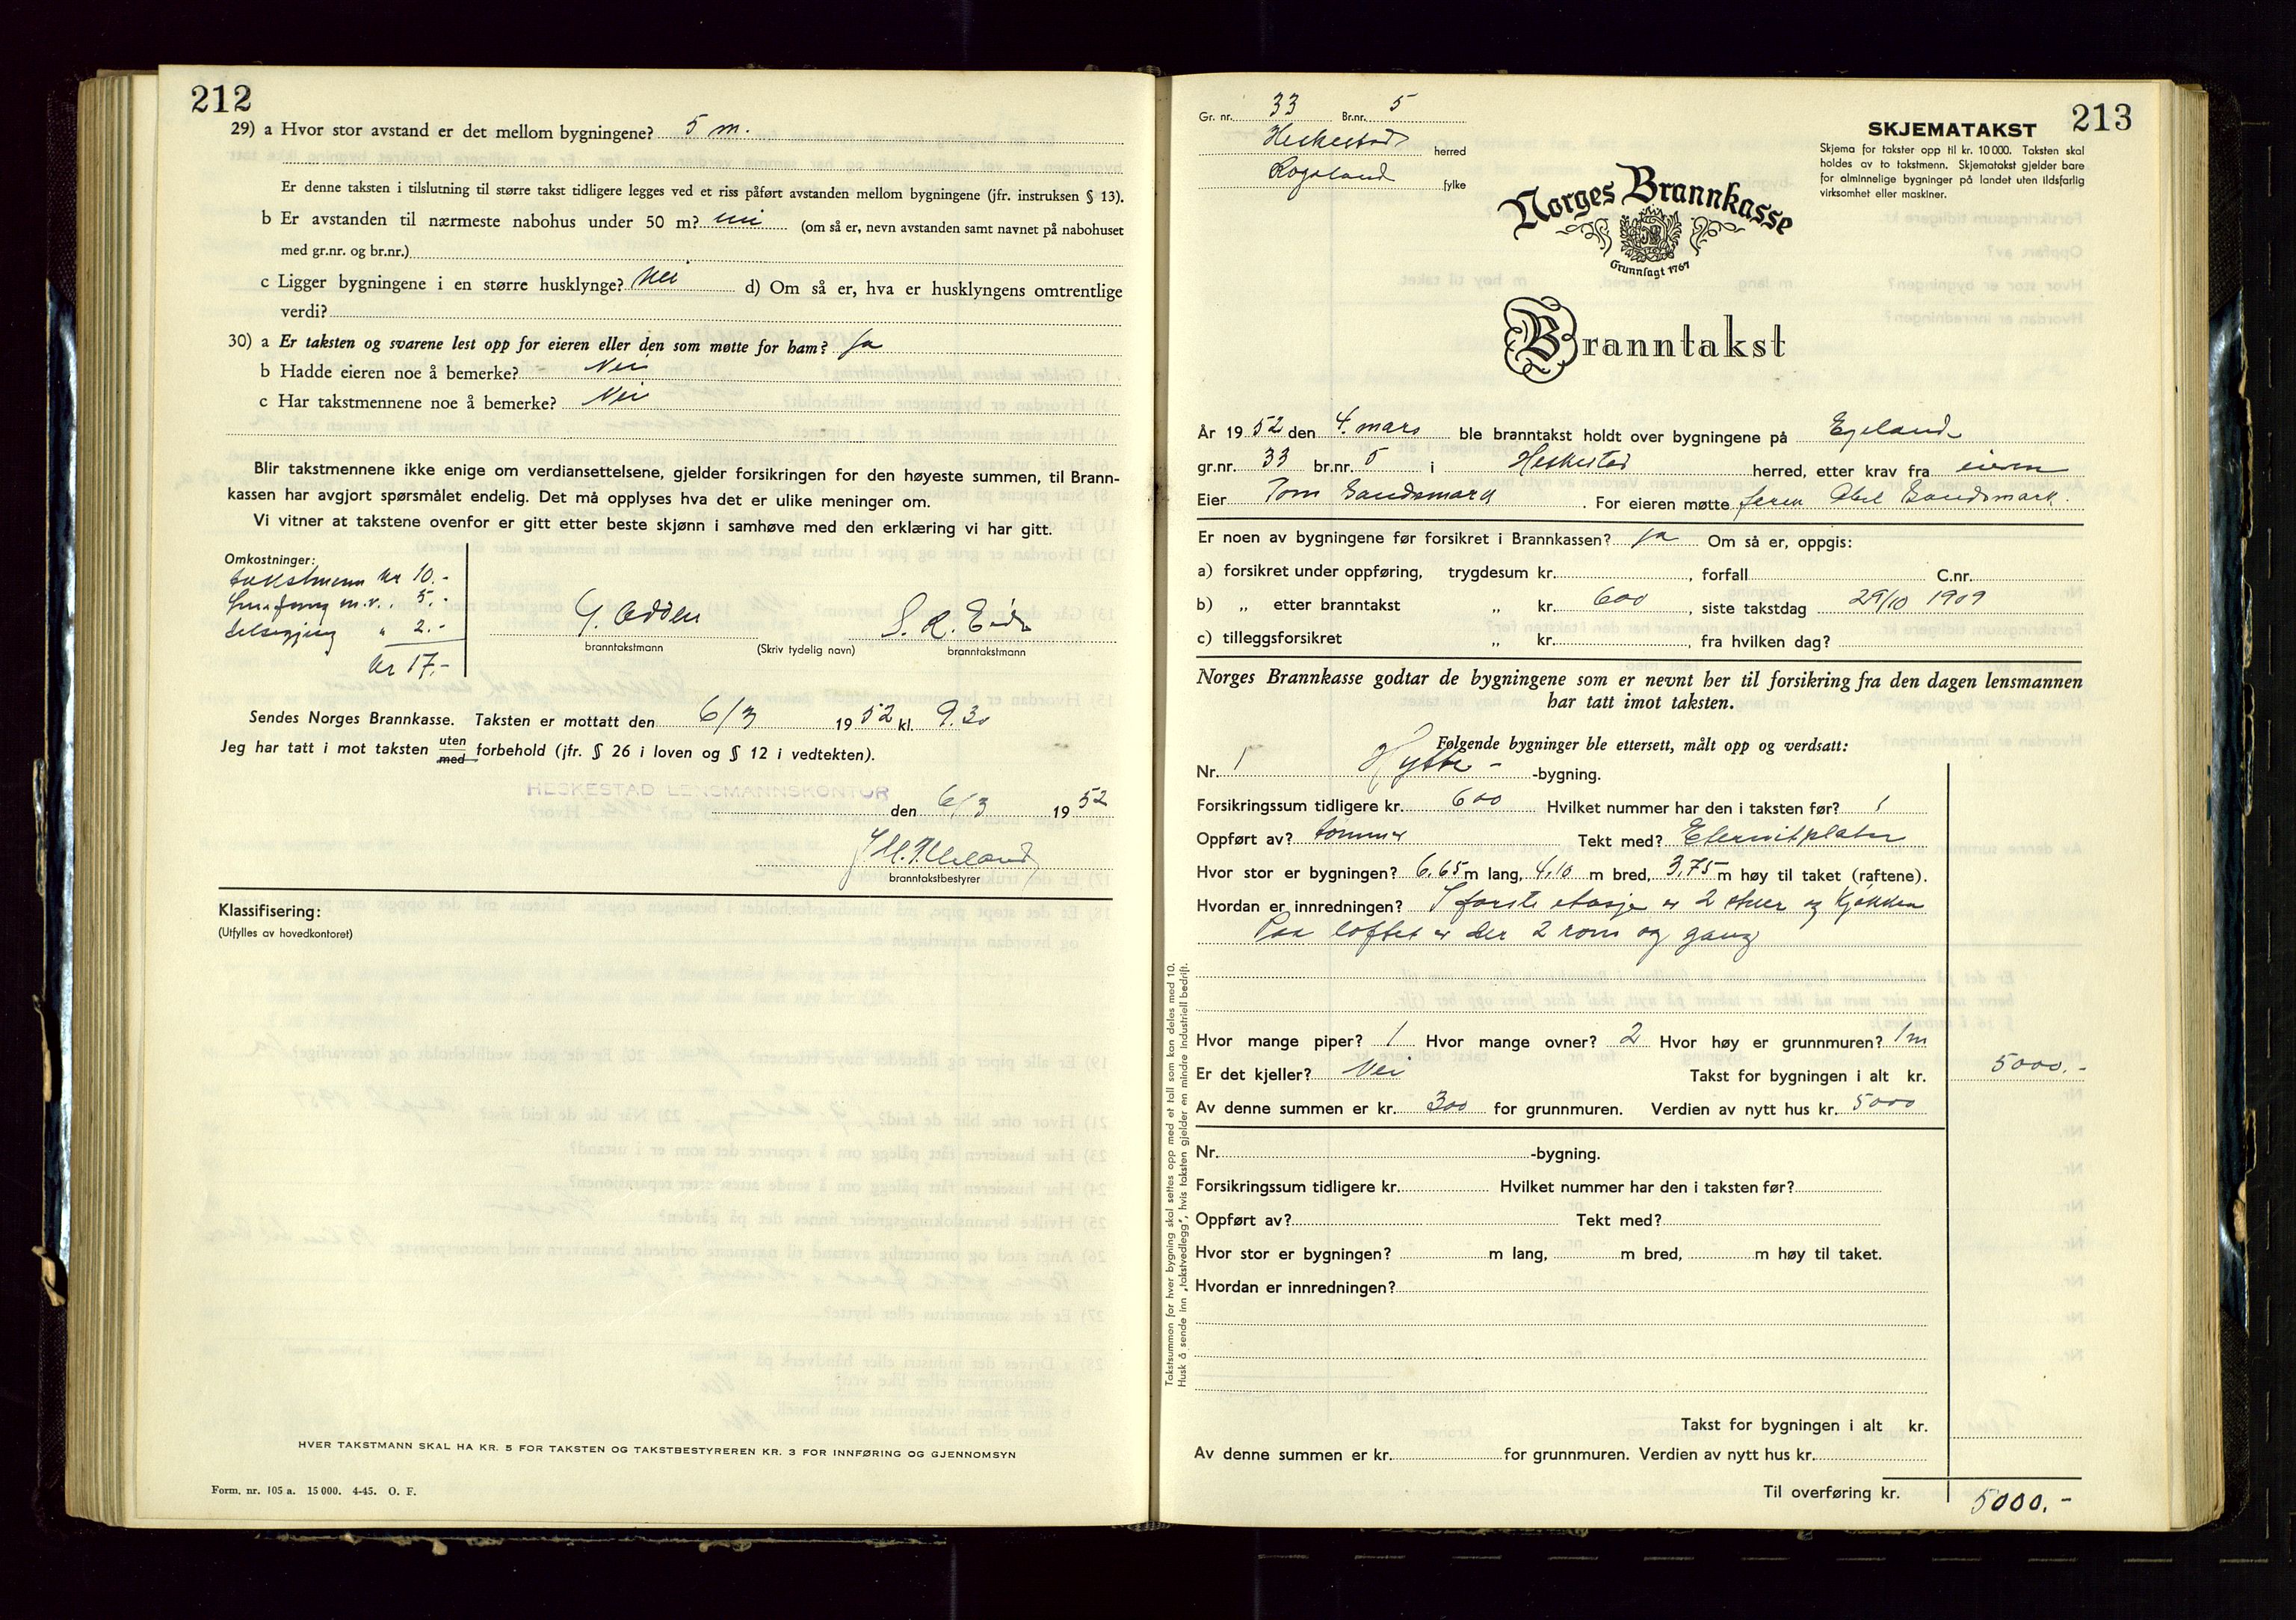 212
29) a Hvor stor avstand er det mellom bygningene? 5 m.
Er denne taksten i tilslutning til større takst tidligere legges ved et riss påført avstanden mellom bygningene (jfr. instruksen § 13).
b Er avstanden til nærmeste nabohus under 50 m? nei (om så er, nevn avstanden samt navnet på nabohuset
med gr.nr. og br.nr.)
c Ligger bygningene i en større husklynge? Nei d) Om så er, hva er husklyngens omtrentlige
verdi?
30) a Er taksten og svarene lest opp for eieren eller den som møtte for ham? Ja
b Hadde eieren noe å bemerke? Nei
c Har takstmennene noe å bemerke? Nei
Blir takstmennene ikke enige om verdiansettelsene, gjelder forsikringen for den høyeste summen, til Brann-
kassen har avgjort spørsmålet endelig. Det må opplyses hva det er ulike meninger om.
Vi vitner at takstene ovenfor er gitt etter beste skjønn i samhøve med den erklæring vi har gitt.
Omkostninger:
takstmenn kr 10.-
m.v. 5.-
" 2.-
kr 17.-
S. R. Eide
branntakstmann (Skriv tydelig navn) branntakstmann
Sendes Norges Brannkasse. Taksten er mottatt den 6/3 1952 kl. 9.30
Jeg har tatt i mot taksten uten med forbehold (jfr. § 26 i loven og § 12 i vedtekten).
HESKESTAD LENSMANNSKONTOR
den 6/3 1952
branntakstbestyrer
Klassifisering:
(Utfylles av hovedkontoret)
HVER TAKSTMANN SKAL HA KR. 5 FOR TAKSTEN OG TAKSTBESTYREREN KR. 3 FOR INNFØRING OG GJENNOMSYN
Form. nr. 105 a. 15 000. 4-45. O. F.
213
Gr. nr. 33 Br.nr. 5
Heskestad herred
Rogaland fylke
SKJEMATAKST
Skjema for takster opp til kr. 10 000. Taksten skal
holdes av to takstmenn. Skjematakst gjelder bare
for alminnelige bygninger på landet uten ildsfarlig
virksomhet eller maskiner.
Norges Brannkasse
Grunnlagt 1767
Branntakst
År 1952 den 4. mars ble branntakst holdt over bygningene på Egeland
gr.nr. 33 br.nr. 5 i Heskestad herred, etter krav fra eieren
Eier Tom Sandsmark . For eieren møtte Abel Sandsmark.
Er noen av bygningene før forsikret i Brannkassen? Ja Om så er, oppgis:
a) forsikret under oppføring, trygdesum kr. , forfall C.nr.
b) „ etter branntakst „ kr. 600 , siste takstdag 29/10 1909
c) tilleggsforsikret „ kr. , fra hvilken dag?
Norges Brannkasse godtar de bygningene som er nevnt her til forsikring fra den dagen lensmannen
har tatt imot taksten.
Følgende bygninger ble ettersett, målt opp og verdsatt:
Nr. 1 Hytte - -bygning.
Forsikringssum tidligere kr. 600 Hvilket nummer har den i taksten før? 1
Oppført av? tømmer Tekt med? Eternitplater
Hvor stor er bygningen? 6.65 m lang, 4,10 m bred, 3,75 m høy til taket (raftene).
Hvordan er innredningen? I første etasje er 2 stuer og kjøkken
Paa loftet er der 2 rom og gang
Hvor mange piper? 1 Hvor mange ovner? 2 Hvor høy er grunnmuren? 1 m
Er det kjeller? Nei Takst for bygningen i alt kr. 5000.-
Av denne summen er kr. 300 for grunnmuren. Verdien av nytt hus kr. 5000
Nr. -bygning.
Forsikringssum tidligere kr. Hvilket nummer har den i taksten før?
Oppført av? Tekt med?
Hvor stor er bygningen? m lang, m bred, m høy til taket.
Hvordan er innredningen?
Takst for bygningen i alt kr.
Av denne summen er kr. for grunnmuren. Verdien av nytt hus kr.
Til overføring kr. 5000.-
Takstsummen for hver bygning skal settes opp med et tall som kan deles med 10.
Husk å sende inn „takstvedlegg", hvis taksten gjelder en mindre industriell bedrift.